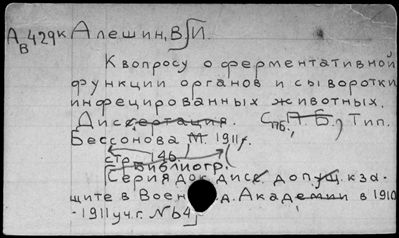 Ав429к Алешин, В. И.
К вопросу о ферментативной
функции органов и сыворотки
инфецированных животных.
Диссертация. Спб., П. Б., Тип.
Бессонова М. 1911г.
стр. 146.
Библиогр.
Серия док. дисс. допущ. к за-
щите в Воен. д. Академии в 1910
-1911 уч. г. №64